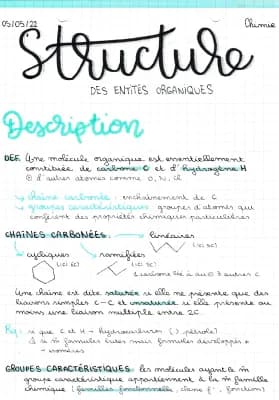 05/05/22
Chimie
Structure
DES ENTITÉS ORGANIQUES
Description
DEF. Une molécule organique est essentiellement
constituée de carbone C et d'hydrogène H
⊕ d'autres atomes comme O, N, Cl
↳ chaîne carbonée : enchaînement de C
↳ groupes caractéristiques : groupes d'atomes qui
confèrent des propriétés chimiques particulières
CHAÎNES CARBONÉES.
linéaires
(ici 5C)
cycliques
(ici 6C)
ramifiées
(ici 5C)
1 carbone lié à au ⊖ 3 autres C
Une chaîne est dite saturée si elle ne présente que des
liaisons simples C-C et insaturée si elle présente au
moins une liaison multiple entre 2C.
Rq : si que C et H → hydrocarbures (: pétrole)
si m̂ formules brutes mais formules développées ≠
→ isomères
GROUPES CARACTÉRISTIQUES les molécules ayant le m̂
groupe caractéristique appartiennent à la m̂ famille
chimique (familles fonctionnelles, dans f°, fonction)